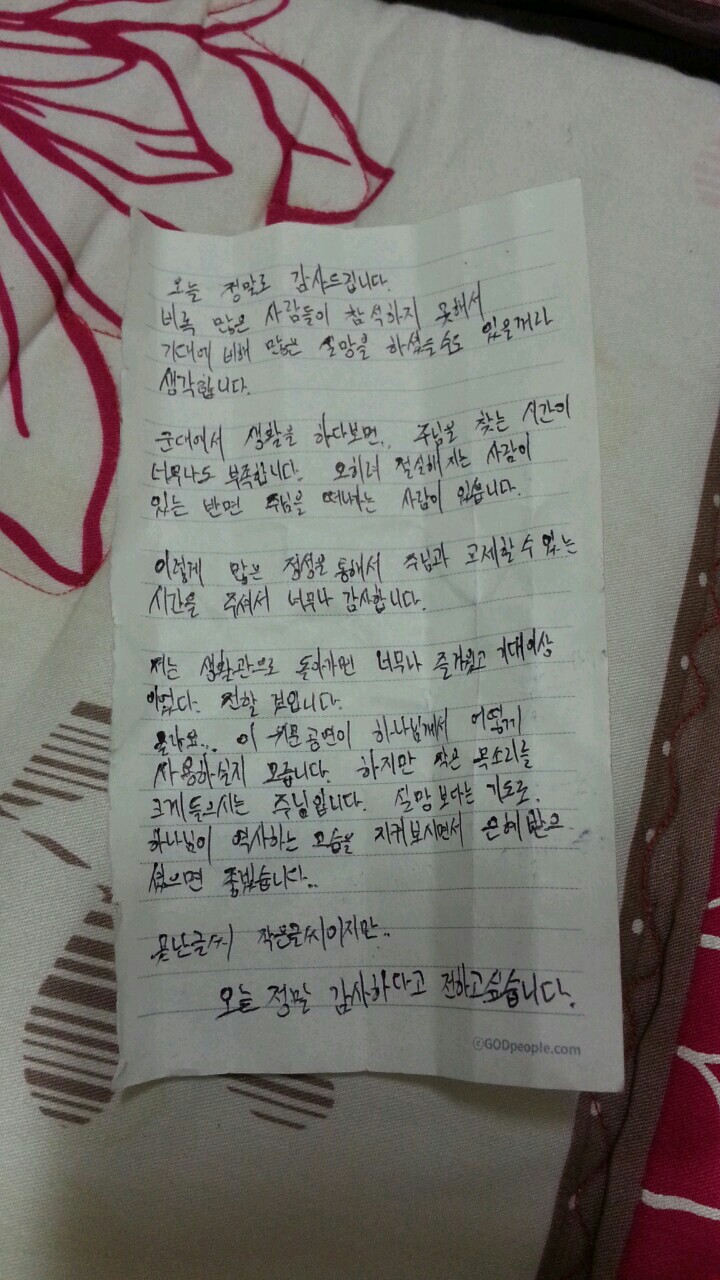 오늘 정말로 감사드립니다.
비록 많은 사람들이 참석하지 못해서
기대에 비해 많은 실망을 하셨을수도 있을꺼라
생각합니다.
군대에서 생활을 하다보면, 주님을 찾는 시간이
너무나도 부족합니다. 오히려 절실해지는 사람이
있는 반면 주님을 떠나가는 사람이 있습니다.
이렇게 많은 정성을 통해서 주님과 교제할 수 있는
시간을 주셔서 너무나 감사합니다.
저는 생활관으로 돌아가면 너무나 즐거웠고 기대이상
이었다. 전할 것입니다.
이 공연이 하나님께서 어떻게
사용하실지 모릅니다. 하지만 작은 목소리를
크게 들으시는 주님입니다. 실망 보다는 기도로
하나님이 역사하는 모습을 지켜보시면서 은혜 받으
셨으면 좋겠습니다..
못난글씨 작은글씨이지만..
오늘 정말 감사하다고 전하고싶습니다.
ⓒGODpeople.com